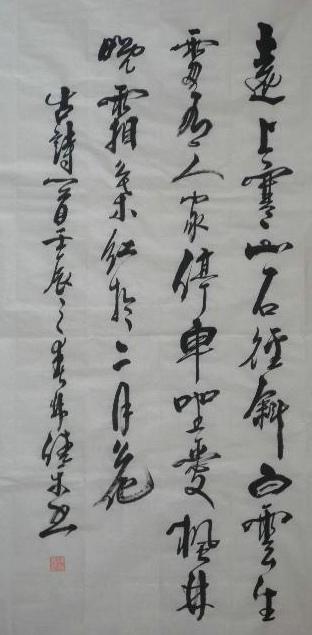 遠上寒山石徑斜白雲生
處有人家停車坐愛楓林
晚霜葉紅於二月花
古詩一首壬辰之春